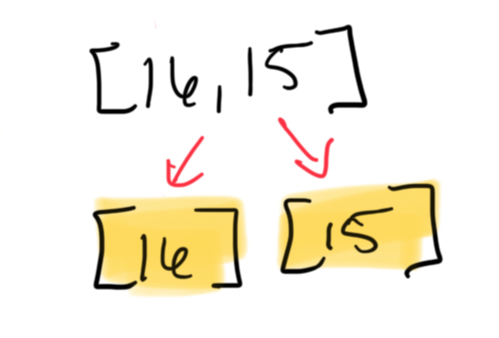 [16, 15]
[16] [15]